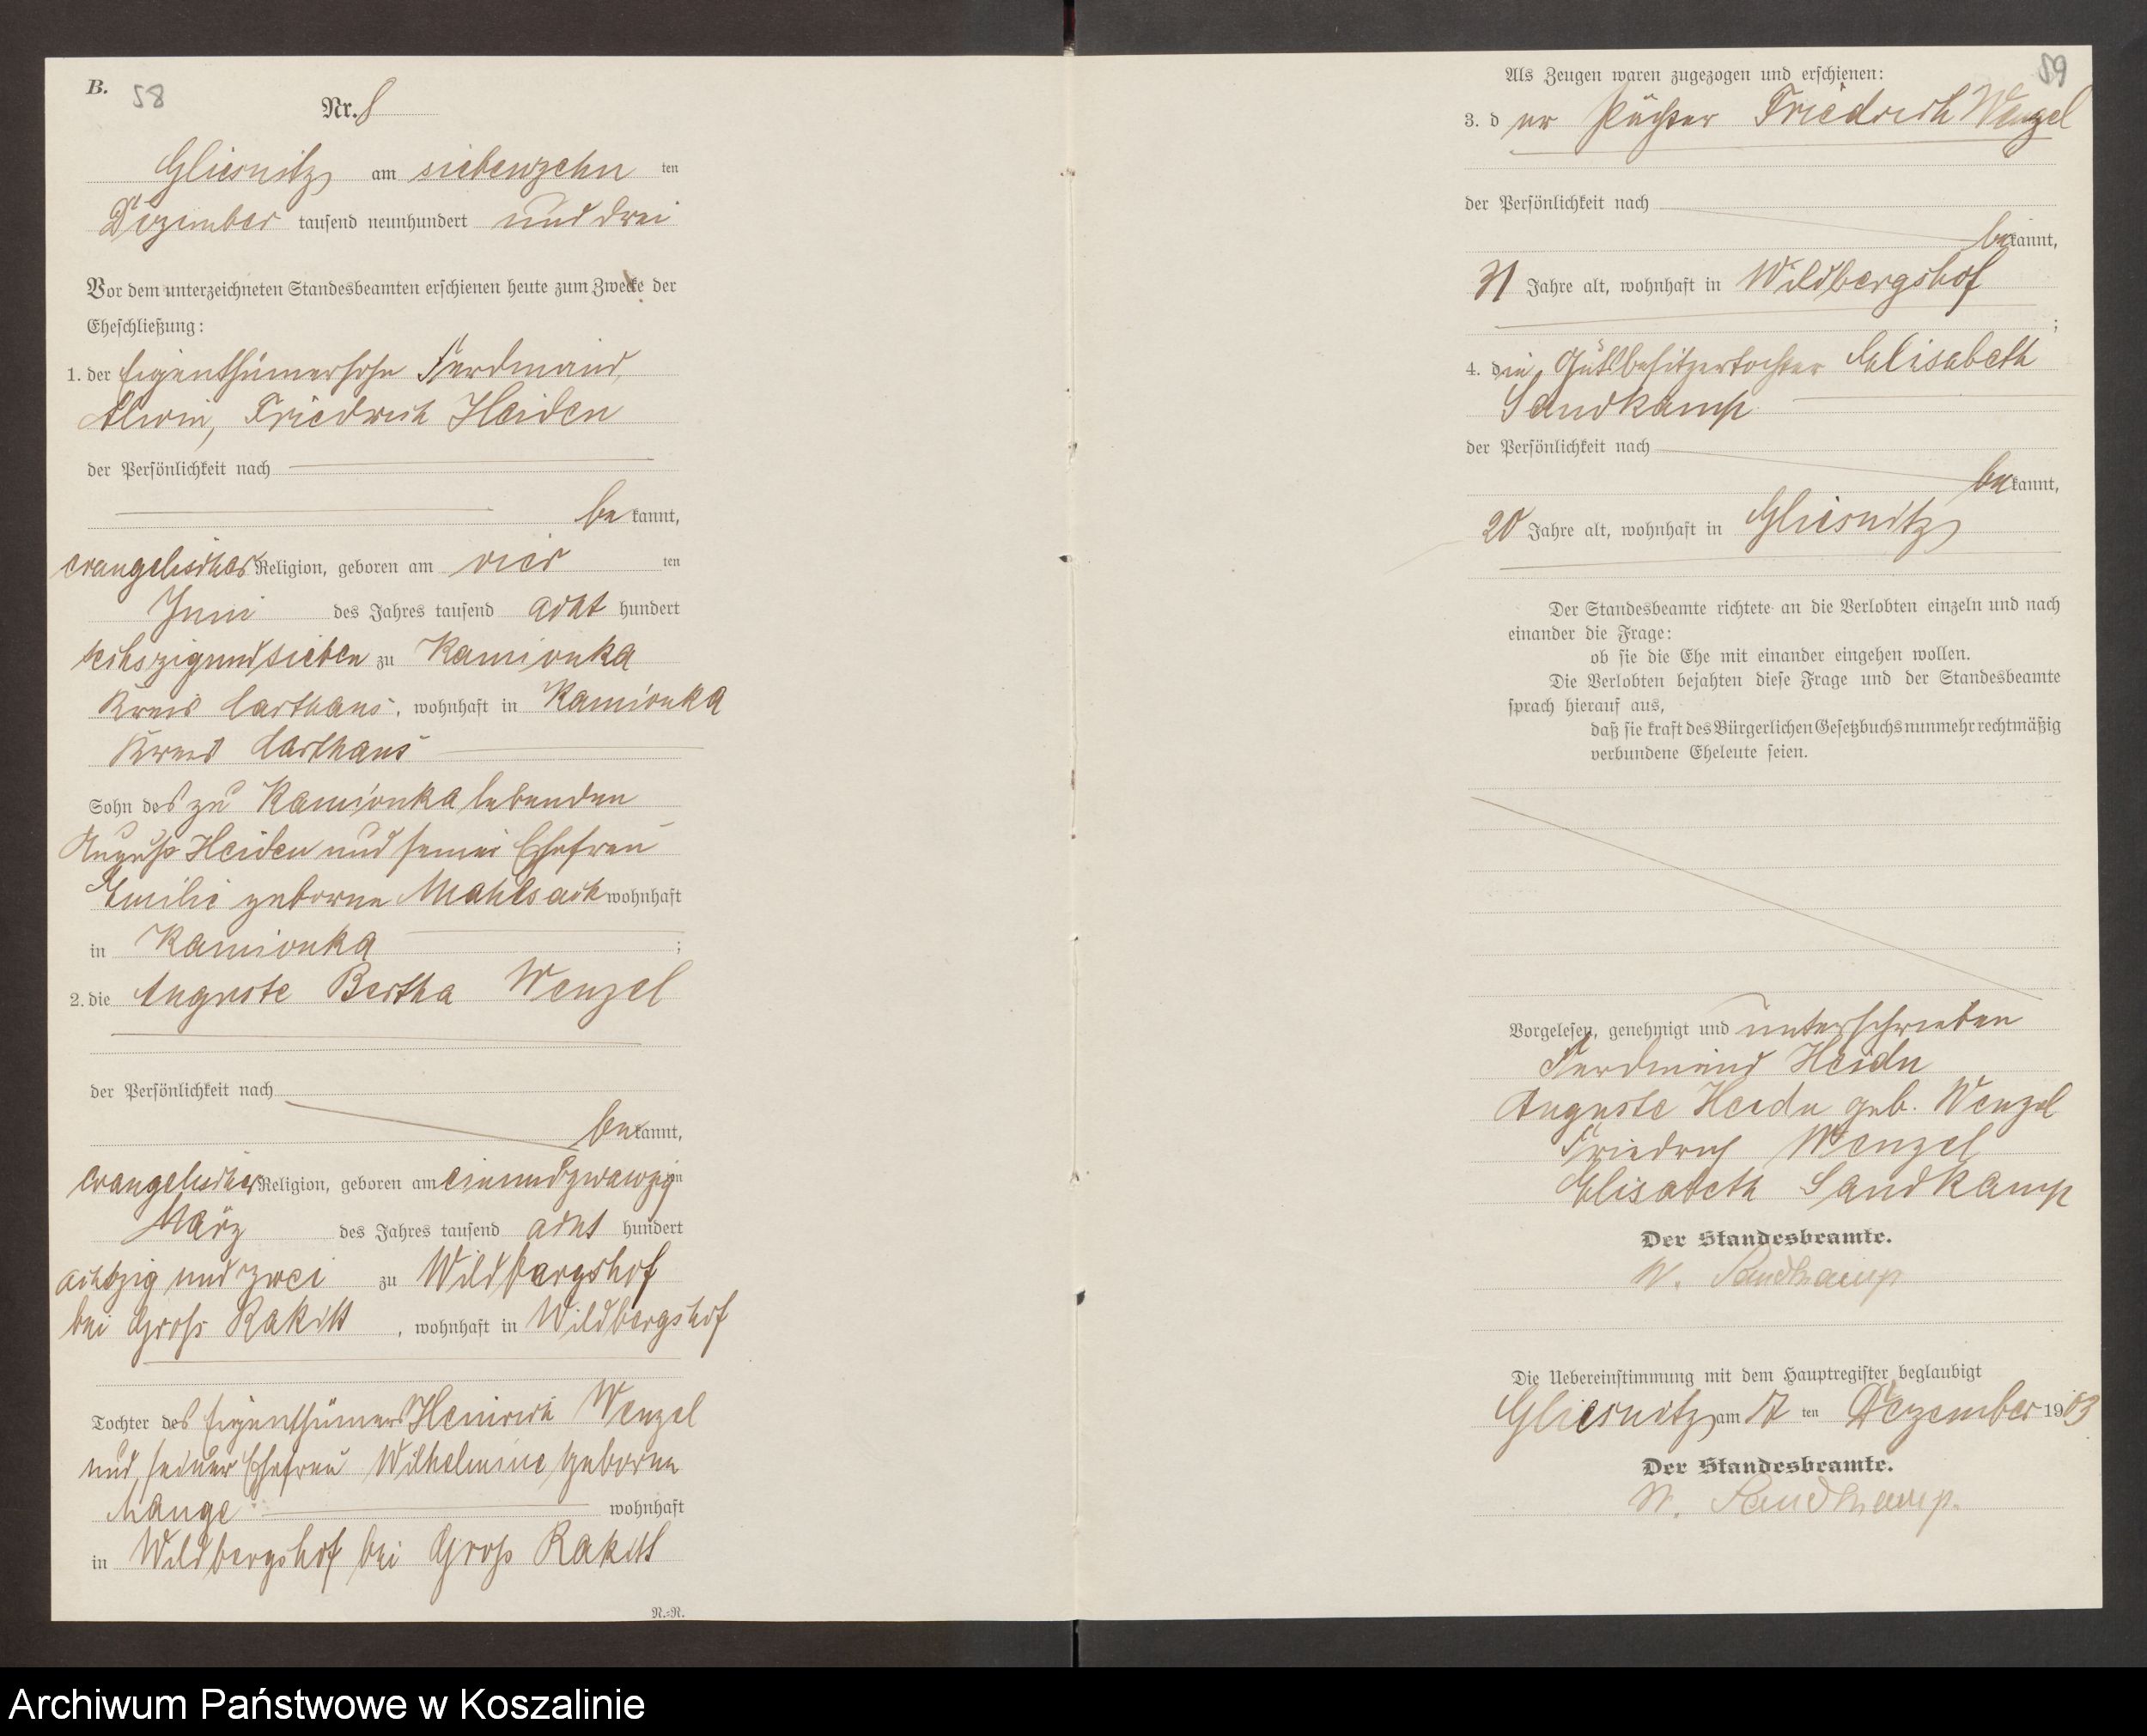 B.
58
Nr. 8
Gliesnitz am siebenzehn ten
Dezember tausend neunhundert und drei
Vor dem unterzeichneten Standesbeamten erschienen heute zum Zwecke der
Eheschließung:
1. der Eigenthümersohn Ferdinand,
Alwin, Friedrich Heiden
der Persönlichkeit nach
be kannt,
evangelischer Religion, geboren am vier ten
Juni des Jahres tausend acht hundert
sechszigundsieben zu Kamionka
Kreis Carthaus, wohnhaft in Kamionka
Kreis Carthaus
Sohn des zu Kamionka lebenden
August Heiden und seiner Ehefrau
Emilie geborne Mahlsack wohnhaft
in Kamionka ;
2. die Auguste Bertha Wenzel
der Persönlichkeit nach
be kannt,
evangelischer Religion, geboren am einundzwanzig
März des Jahres tausend acht hundert
achtzig und zwei zu Wildbergshof
bei Gross Rakitt , wohnhaft in Wildbergshof
Tochter des Eigenthümers Heinrich Wenzel
und seiner Ehefrau Wilhelmine geborne
Mange wohnhaft
in Wildbergshof bei Gross Rakitt
N.=N.
59
Als Zeugen waren zugezogen und erschienen:
3. d er Pächter Friedrich Wenzel
der Persönlichkeit nach
be kannt,
31 Jahre alt, wohnhaft in Wildbergshof
;
4. d ie Gutsbesitzertochter Elisabeth
Sandkamp
der Persönlichkeit nach
be kannt,
20 Jahre alt, wohnhaft in Gliesnitz
Der Standesbeamte richtete an die Verlobten einzeln und nach
einander die Frage:
ob sie die Ehe mit einander eingehen wollen.
Die Verlobten bejahten diese Frage und der Standesbeamte
sprach hierauf aus,
daß sie kraft des Bürgerlichen Gesetzbuchs nunmehr rechtmäßig
verbundene Eheleute seien.
Vorgelesen, genehmigt und unterschrieben
Ferdinand Heidn
Auguste Heidn geb. Wenzel
Friedrich Wenzel
Elisabeth Sandkamp
Der Standesbeamte.
W. Sandkamp
Die Uebereinstimmung mit dem Hauptregister beglaubigt
Gliesnitz am 17 ten Dezember 1903
Der Standesbeamte.
W. Sandkamp.
Archiwum Państwowe w Koszalinie